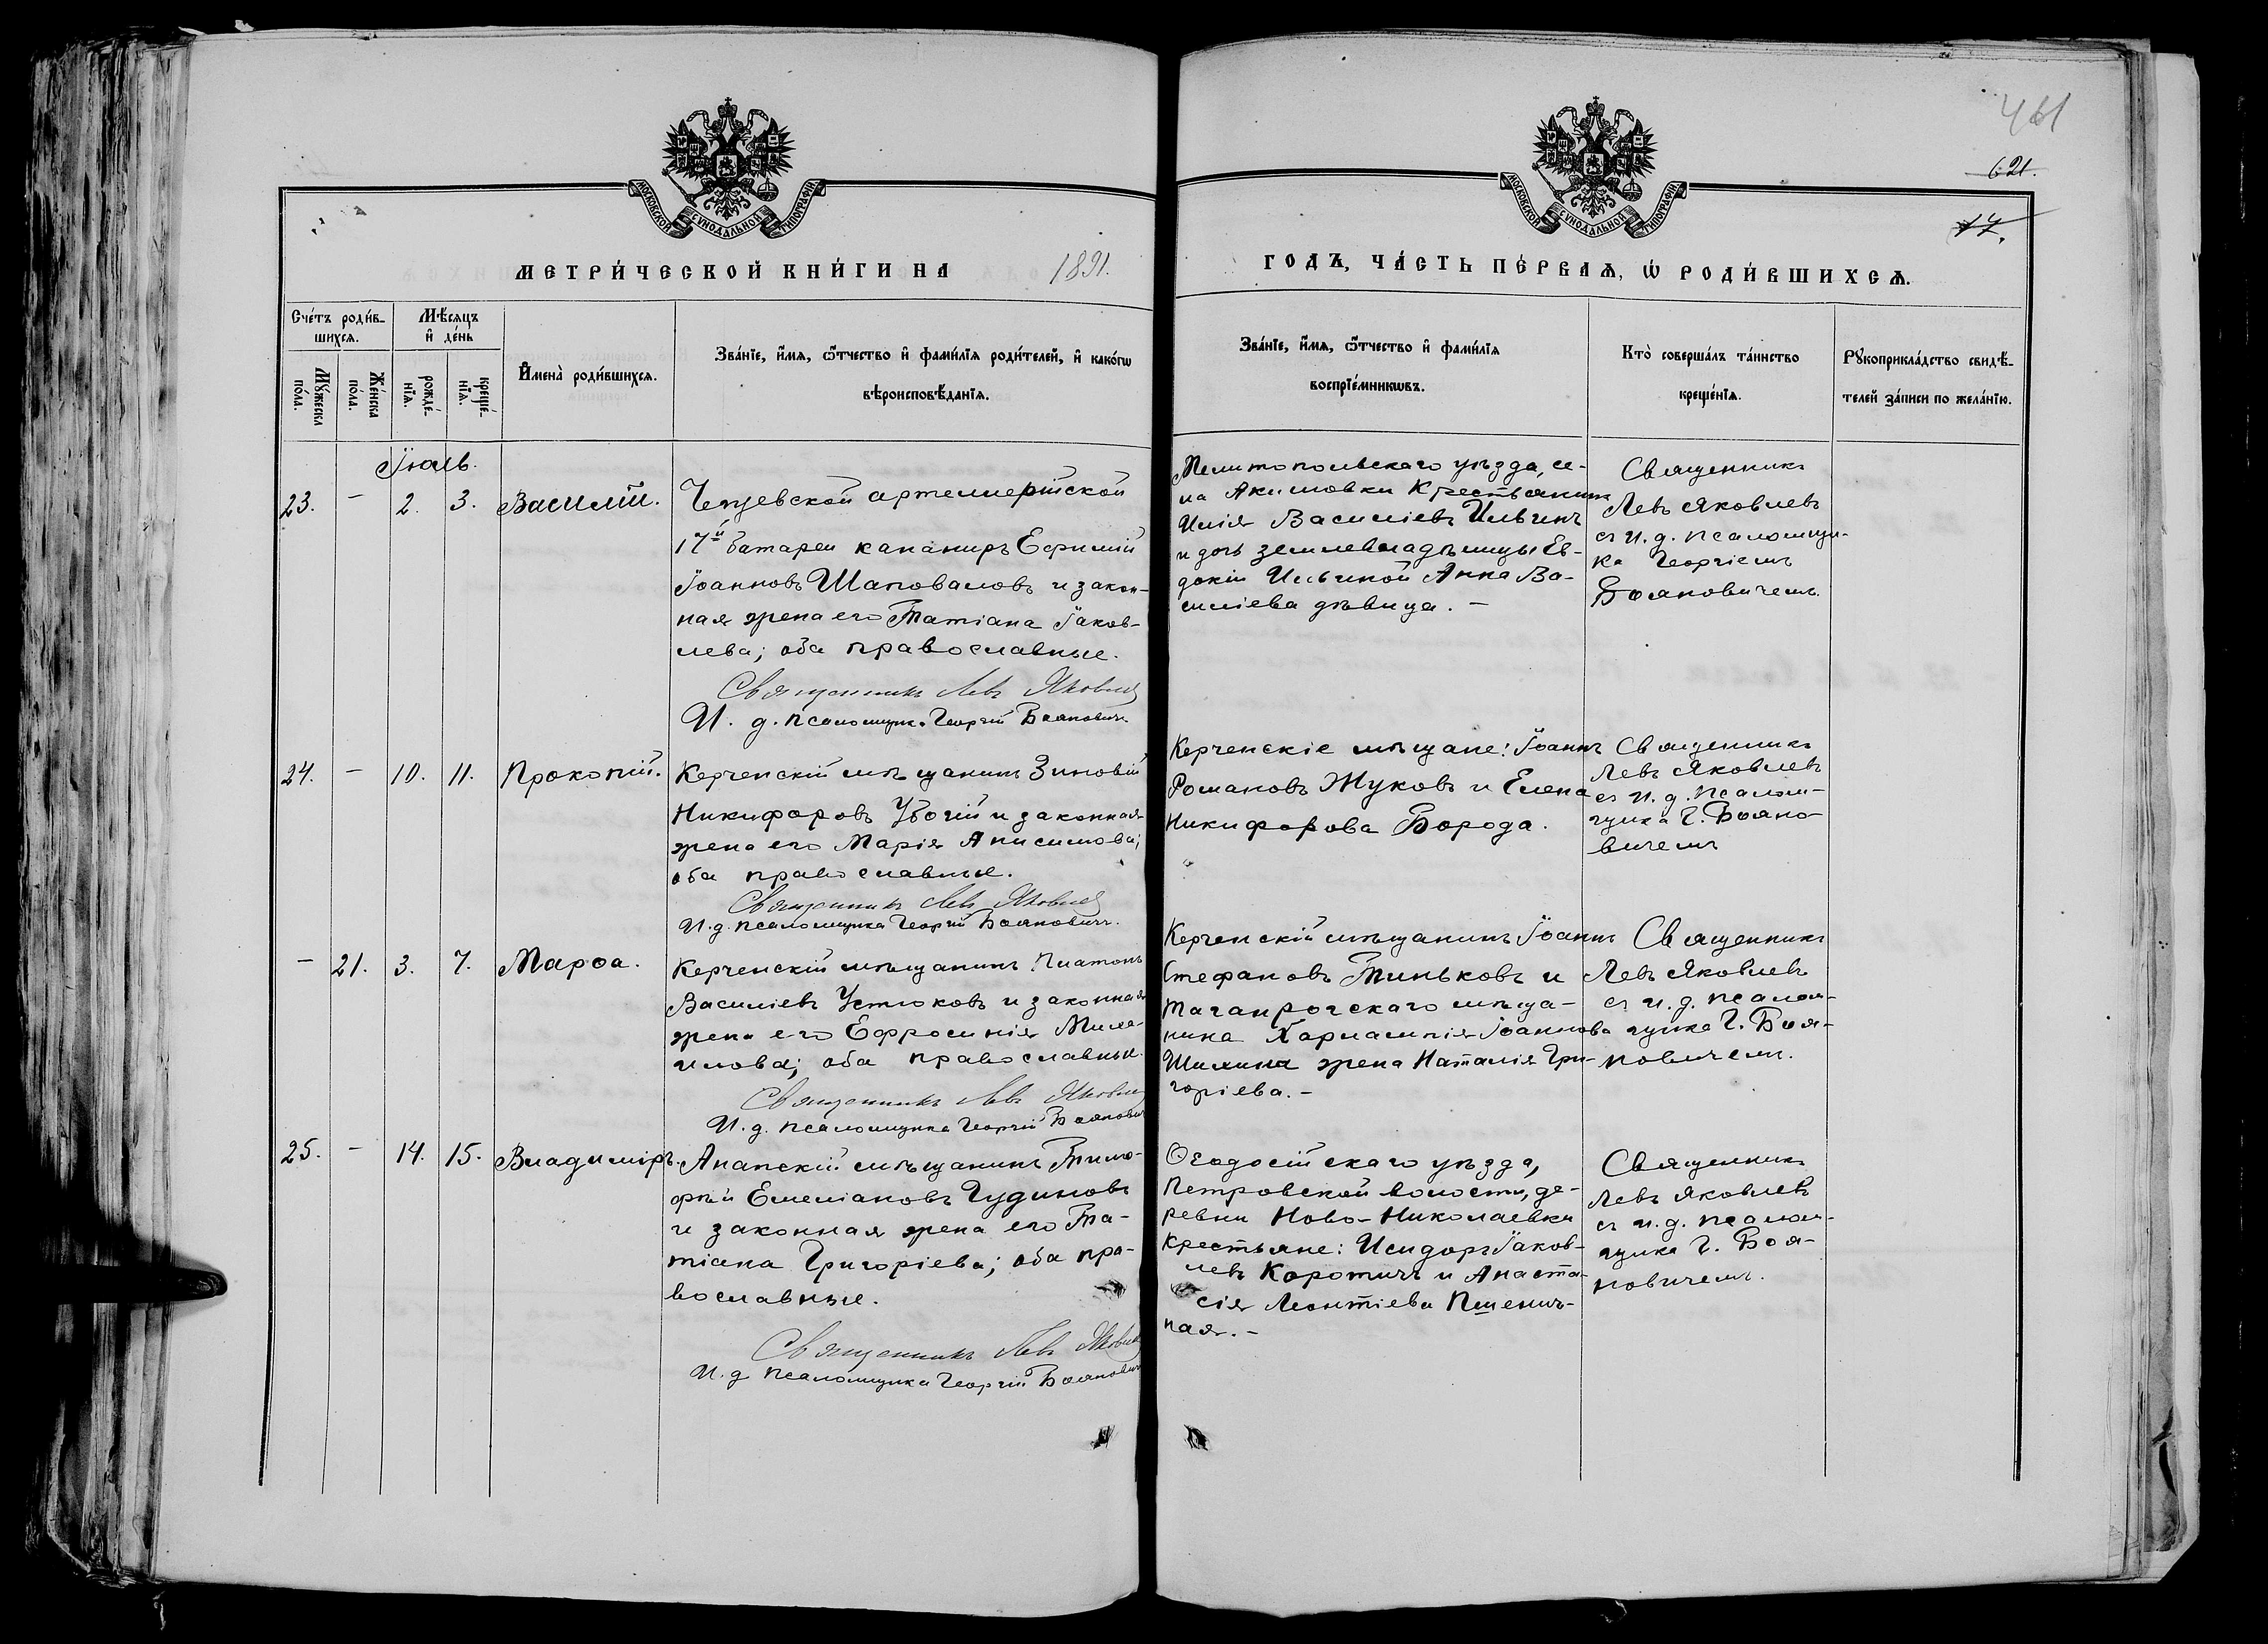 461
621.
17.
МОСКОВСКОЙ СѴНОДАЛЬНОЙ ТИПОГРАФІИ
МОСКОВСКОЙ СѴНОДАЛЬНОЙ ТИПОГРАФІИ
МЕТРИ́ЧЕСКОЙ КНИ́ГИ НА 1891.
ГОДЪ, ЧА́СТЬ ПЕ́РВАѦ, Ѡ҆ РОДИ́ВШИХСѦ.
Сче́тъ роди́в-
шихсѧ.
Мѣ́сѧцъ
и҆ де́нь
Мꙋ́жеска
по́ла.
Же́нска
по́ла.
рожде́-
нїѧ.
креще́-
нїѧ.
И҆мена̀ роди́вшихсѧ.
Зва́нїе, и҆́мѧ, ѻ҆́тчество и҆ фами́лїѧ роди́телей, и҆ како́гѡ
вѣроисповѣ́данїѧ.
Зва́нїе, и҆́мѧ, ѻ҆́тчество и҆ фами́лїѧ
воспрїе́мникѡвъ.
Кто̀ соверша́лъ та́инство
креще́нїѧ.
Рꙋкоприкла́дство свидѣ́-
телей за́писи по жела́нїю.
Іюль.
23. – 2. 3. Василій.
артиллерійской
17й батареи канониръ Ефимій
Іоанновъ Шаповаловъ и закон-
ная жена его Татіана Іаков-
лева; оба православные.
Священникъ Левъ Яковлев
И. д. псаломщика Георгій Бояновичъ
Мелитопольскаго уѣзда, се-
ла Акимовки Крестьянинъ
Илія Василіевъ Ильинъ
и дочь землевладѣлицы Ев-
докіи Ильиной Анна Ва-
силіева дѣвица. –
Священникъ
Левъ Яковлевъ
съ И. д. псаломщи-
ка Георгіемъ
Бояновичемъ.
24. – 10. 11. Прокопій.
Керченскій мѣщанинъ Зиновій
Никифоровъ Убогій и законная
жена его Марія Анисимова;
оба православные.
Священникъ Левъ Яковлев
И. д. псаломщика Георгій Бояновичъ.
Керченскіе мѣщане: Іоаннъ
Романовъ Жуковъ и Елена
Никифорова Борода.
Священникъ
Левъ Яковлевъ
съ и. д. псалом-
щика Г. Бояно-
вичемъ
– 21. 3. 7. Марѳа.
Керченскій мѣщанинъ Платонъ
Василіевъ Устюковъ и законная
жена его Ефросинія
оба православные.
Священникъ Левъ Яковлев
И. д. псаломщика Георгій Боянович
Керченскій мѣщанинъ Іоаннъ
Стефановъ Тиньковъ и
таганрогскаго мѣща-
нина Харлампія Іоаннова
Шилина жена Наталія Гри-
горіева. –
Священникъ
Левъ Яковлевъ
съ и. д. псалом-
щика Г. Боя-
новичемъ.
25. – 14. 15. Владиміръ.
Анапскій мѣщанинъ Тимо-
фѣй Емеліановъ Чудиновъ
и законная жена его Та-
тіана Григоріева; оба пра-
вославные.
Священникъ Левъ Яковлев
И. д псаломщика Георгій Боянович
Ѳеодосійскаго уѣзда,
Петровской волости, де-
ревни Ново-Николаевки
крестьяне: Исидоръ Іаков-
левъ Коротичъ и Анаста-
сія Леонтіева Пшенич-
ная. –
Священникъ
Левъ Яковлевъ
съ и. д. псалом-
щика Г. Боя-
новичемъ.